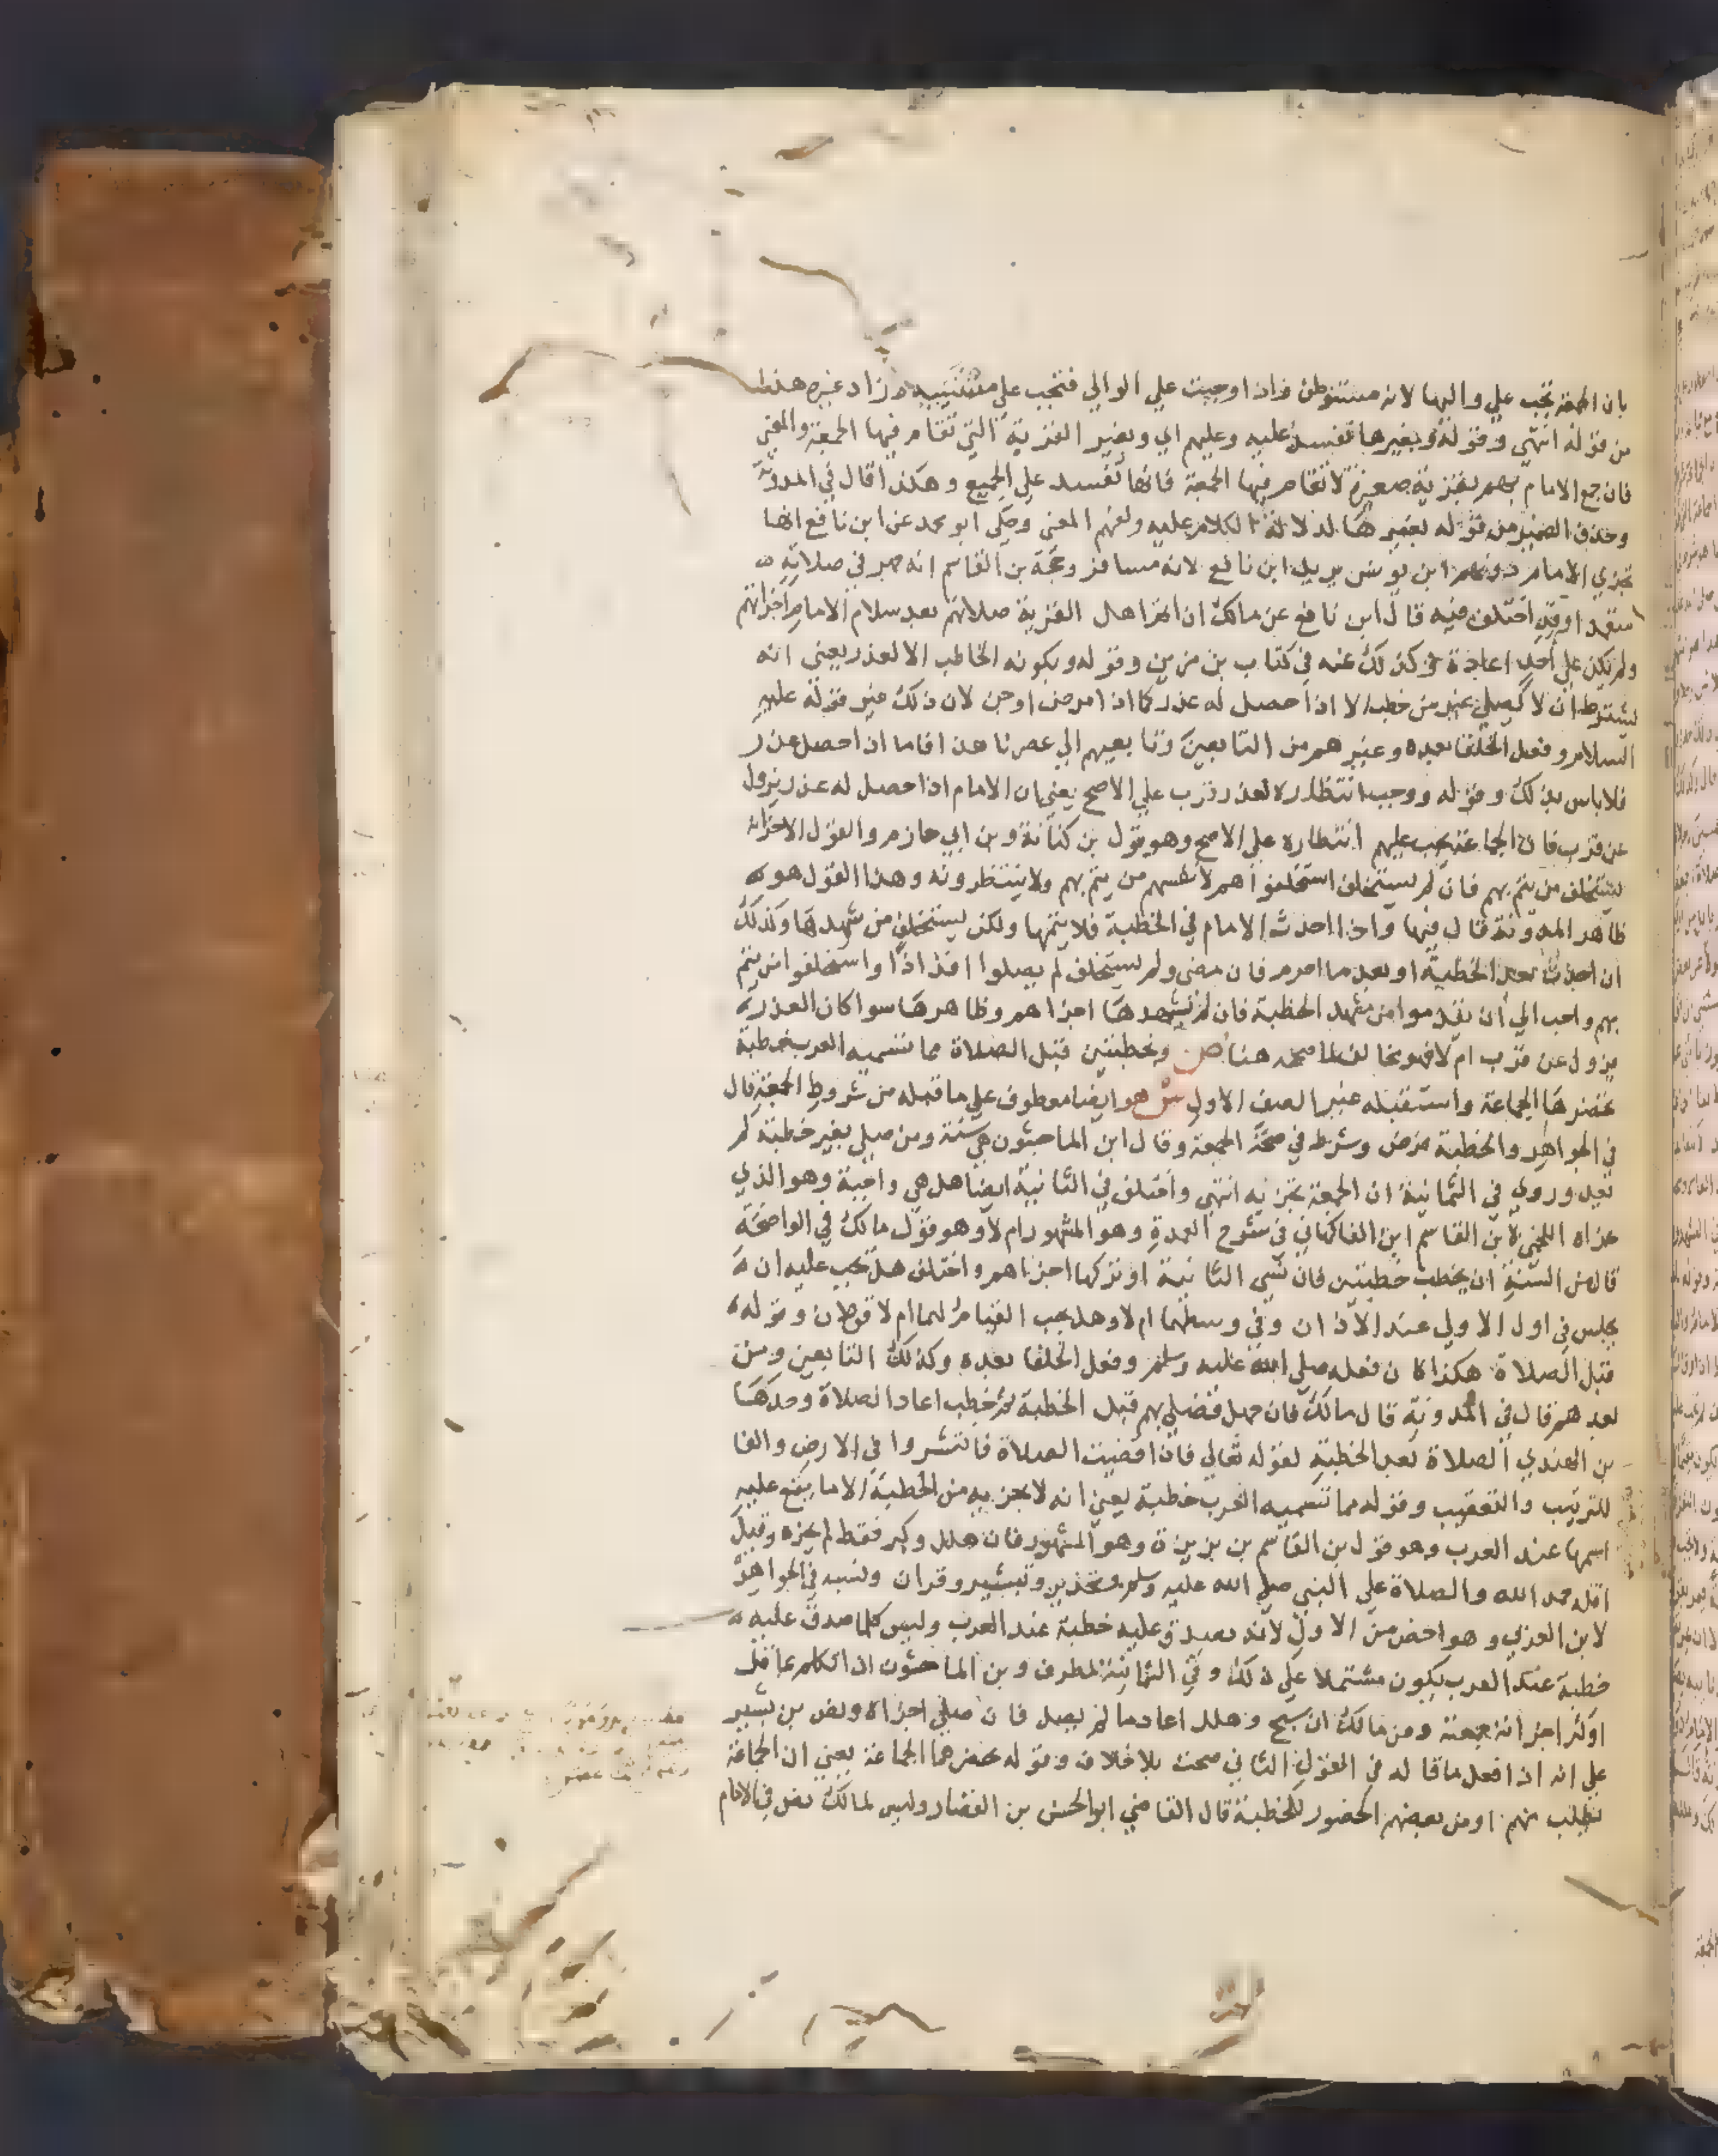 بان الجمعة تجب علي واليها لانه مستوطن فاذا وجبت علي الوالي فتجب علي مستنيبه زاد غيره هذا
من قوله انتهي وقوله وبغيرها تفسد عليه وعليهم اي وبغير القرية التي تقام فيها الجمعة والمعني
فان جمع الامام بهم بقرية صغيرة لا تقام فيها الجمعة فانها تفسد علي الجميع وهكذا قال في المدونة
وحذف الضمير من قوله بغيرها لدلالة الكلام عليه ولفهم المعني وحكي ابو محمد عن ابن نافع انها
تجزي الامام دونهم ابن يونس يريد ابن نافع لانه مسافر وحجة بن القاسم انه جهر في صلاته
اختلف فيه قال ابن نافع عن مالك ان اتم اهل القرية صلاتهم بعد سلام الامام اجزاتهم
ولم يكن علي احد اعادة كذلك عنه في كتاب بن مزين وقوله وبكونه الخاطب الا لعذر يعني انه
يشترط ان لا يصلي غير من خطب الا اذا حصل له عذر كما اذا مرض او جن لان ذلك غير قوله عليه
السلام وفعل الخلفا بعده وغيرهم من التابعين وتابعيهم الي عصرنا هذا فاما اذا حصل عذر
فلا باس بذلك وقوله ووجب انتظاره لعذر قرب علي الاصح يعني ان الامام اذا حصل له عذر يزول
عن قرب فان الجماعة يجب عليهم انتظاره علي الاصح وهو قول بن كنانة وبن ابي حازم والقول الاخر انه
يستخلف من يتم بهم فان لم يستخلف استخلفوا هم لانفسهم من يتم بهم ولا ينتظرونه وهذا القول هو
ظاهر المدونة قال فيها واذا احدث الامام في الخطبة فلا يتمها ولكن يستخلف من شهدها وكذلك
ان احدث بعد الخطبة او بعد ما احرم فان مضي ولم يستخلف لم يصلوا افذاذا واستخلفوا من يتم
بهم واحب الي ان يقدموا من شهد الخطبة فان لم يشهدها اجزاهم وظاهرها سوا كان العذر
يزول عن قرب ام لا فهو مخالف لما صححه هنا ص وبخطبتين قبل الصلاة مما تسميه العرب خطبة
تحضرها الجماعة واستقبله غير الصف الاول ش هو ايضا معطوف علي ما قبله من شروط الجمعة قال
في الجواهر والخطبة فرض وشرط في صحة الجمعة وقال ابن الماجشون هي سنة ومن صلي بغير خطبة لم
يعد وروي في الثمانية ان الجمعة تجزيه انتهي واختلف في الثانية ايضا هل هي واجبة وهو الذي
عزاه اللخمي لابن القاسم ابن الفاكهاني في شرح العمدة وهو المشهور ام لا وهو قول مالك في الواضحة
قال من السنة ان يخطب خطبتين فان نسي الثانية او تركها اجزاهم واختلف هل يجب عليه ان
يجلس في اول الاولي عند الاذان وفي وسطهما ام لا وهل يجب القيام لهما ام لا قولان وقوله
قبل الصلاة هكذا كان فعله صلي الله عليه وسلم وفعل الخلفا بعده وكذلك التابعين ومن
بعدهم قال في المدونة قال مالك فان جهل فصلي بهم قبل الخطبة ثم خطب اعاد الصلاة وحدها
الصلاة بعد الخطبة لقوله تعالي فاذا قضيت الصلاة فانتشروا في الارض والفا
للترتيب والتعقيب وقوله مما تسميه العرب خطبة يعني انه لا يجزيه من الخطبة الا ما يقع عليه
اسمها عند العرب وهو قول بن القاسم بن بزيزة وهو المشهور فان هلل وكبر فقط لم يجزه وقيل
اقله حمد الله والصلاة علي النبي صلي الله عليه وسلم وتحذير وتبشير وقران ونسبه في الجواهر
لابن العربي وهو اخص من الاول لانه يصدق عليه خطبة عند العرب وليس كلما صدق عليه
خطبة عند العرب يكون مشتملا علي ذلك وفي الثمانية لمطرف وبن الماجشون ان تكلم بما قل
او كثر اجزاته جمعته ومن مالك ان سبح وهلل اعاد ما لم يصل فان صلي اجزاه ونص بن بشير
علي انه اذا فعل ما قاله في القول الثاني صحت بلا خلاف وقوله تحضرهما الجماعة يعني ان الجماعة
تطلب منهم او من بعضهم الحضور للخطبة قال القاضي ابو الحسن بن القصار وليس لمالك نص في الامام